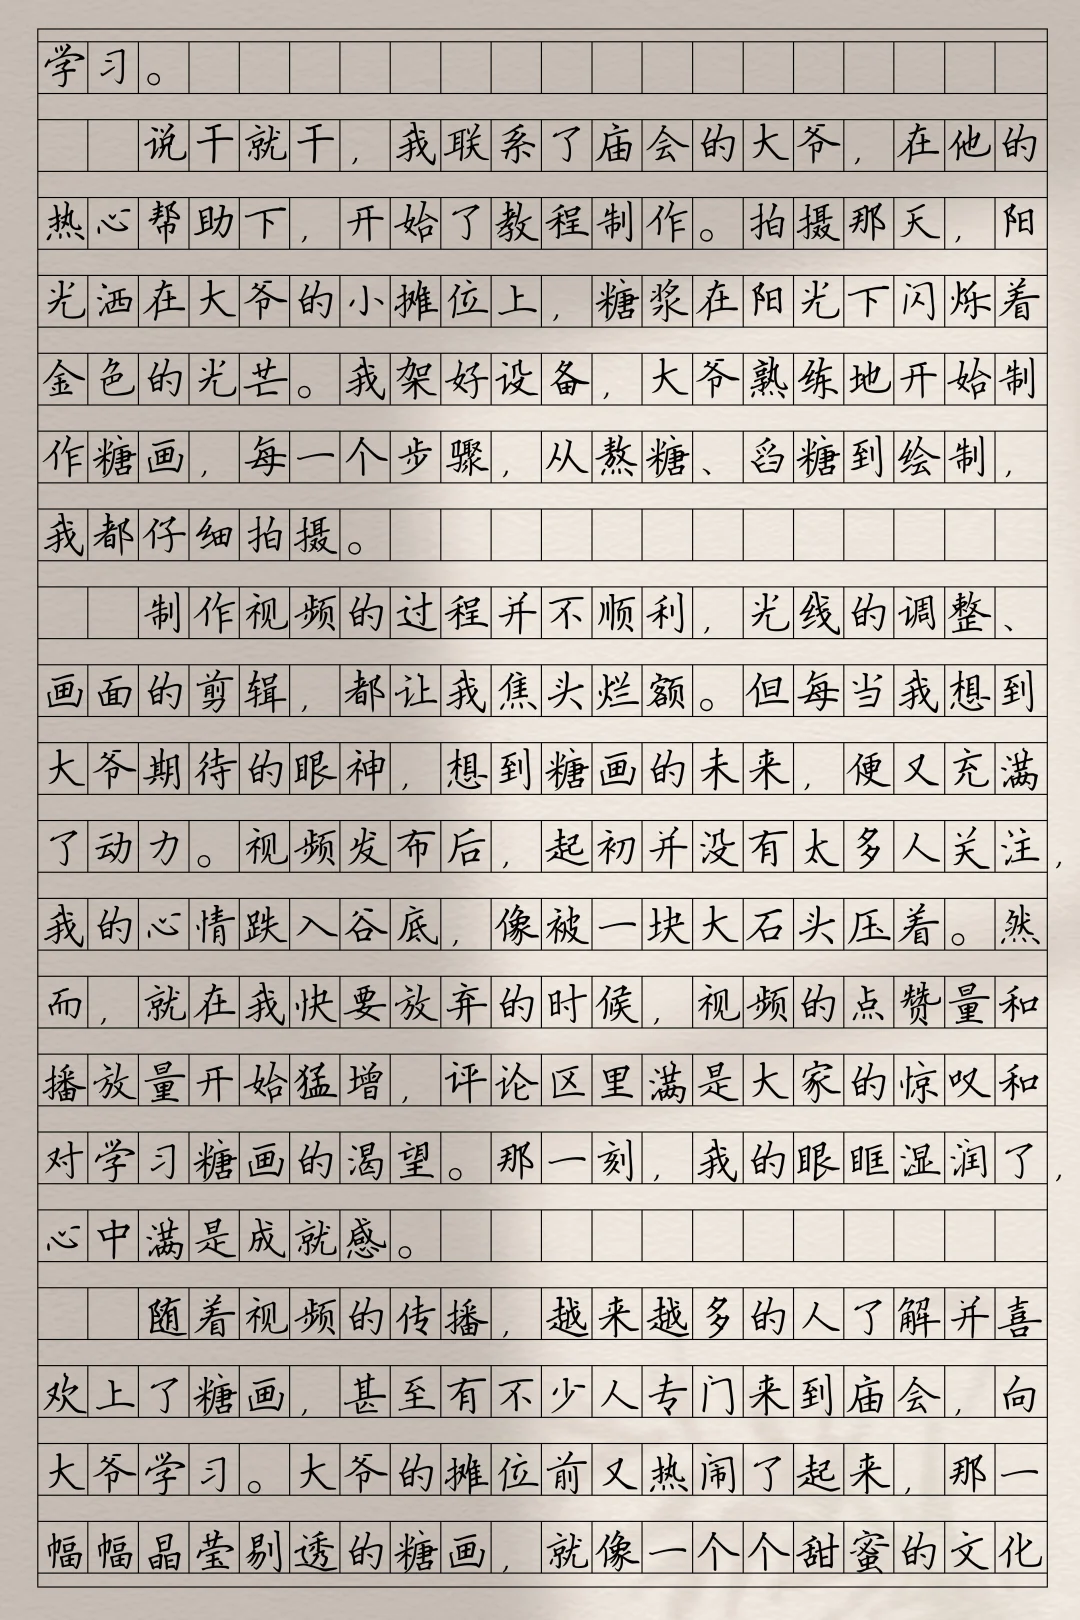 学习。
说干就干，我联系了庙会的大爷，在他的
热心帮助下，开始了教程制作。拍摄那天，阳
光洒在大爷的小摊位上，糖浆在阳光下闪烁着
金色的光芒。我架好设备，大爷熟练地开始制
作糖画，每一个步骤，从熬糖、舀糖到绘制，
我都仔细拍摄。
制作视频的过程并不顺利，光线的调整、
画面的剪辑，都让我焦头烂额。但每当我想到
大爷期待的眼神，想到糖画的未来，便又充满
了动力。视频发布后，起初并没有太多人关注，
我的心情跌入谷底，像被一块大石头压着。然
而，就在我快要放弃的时候，视频的点赞量和
播放量开始猛增，评论区里满是大家的惊叹和
对学习糖画的渴望。那一刻，我的眼眶湿润了，
心中满是成就感。
随着视频的传播，越来越多的人了解并喜
欢上了糖画，甚至有不少人专门来到庙会，向
大爷学习。大爷的摊位前又热闹了起来，那一
幅幅晶莹剔透的糖画，就像一个个甜蜜的文化